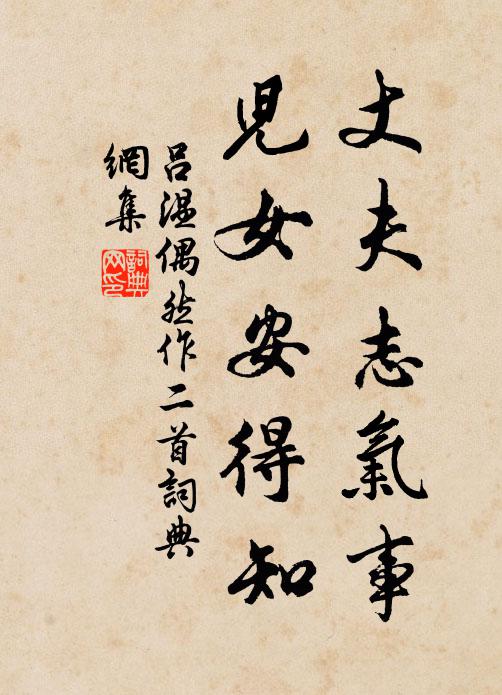 丈夫志氣事
兒女安得知
呂溫偶然作二首詞典
網集
詞典
网印